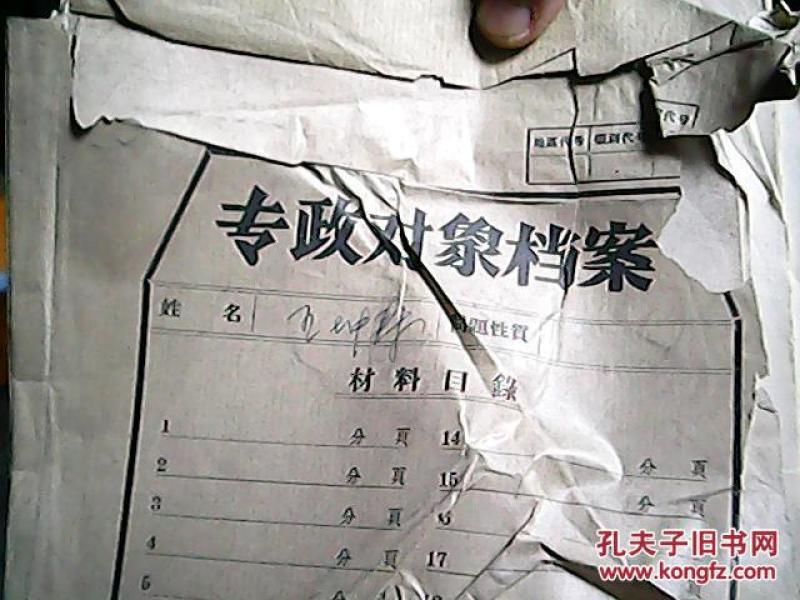 地區代号 縣别代号 代号
专政对象档案
姓 名 王坤 问題性質
材料目錄
1 分頁 14 分頁
2 分頁 15 分頁
3 分頁 6
4 分頁 17
5 分頁 頁
孔夫子旧书网
www.kongfz.com